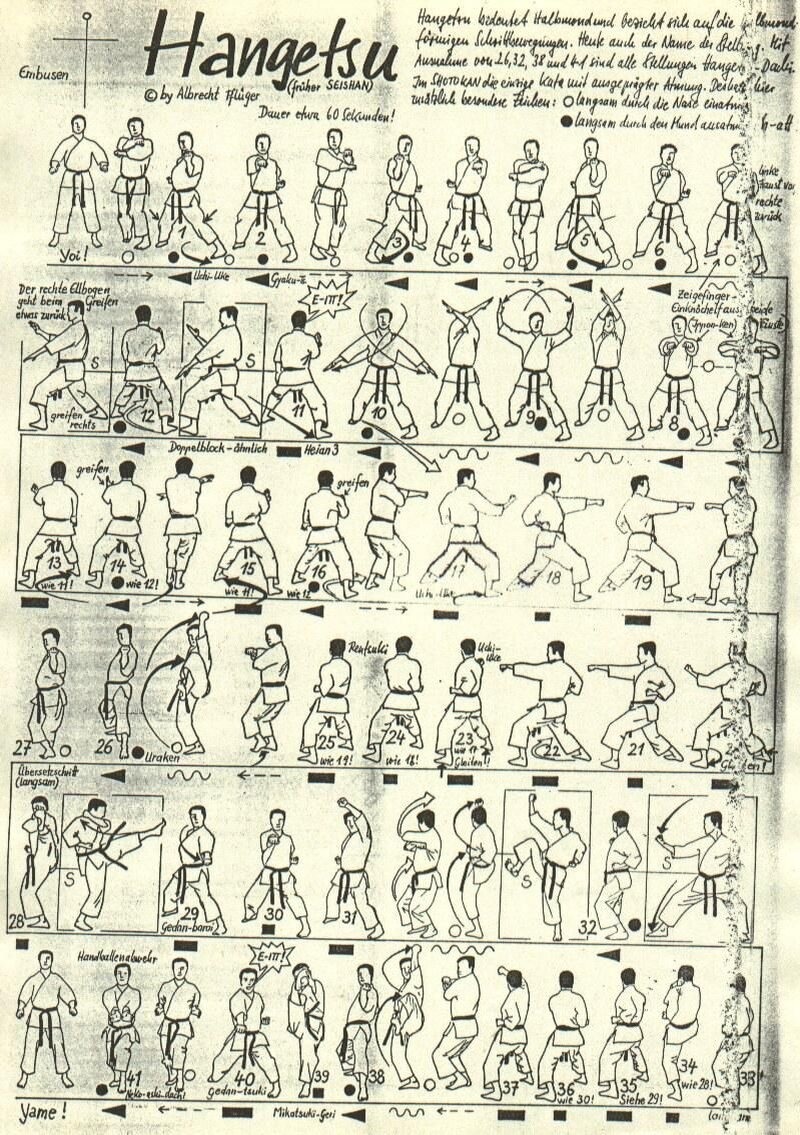 Embusen
Hangetsu
(früher SEISHAN)
© by Albrecht Pflüger
Dauer etwa 60 Sekunden!
Hangetsu bedeutet Halbmond und bezieht sich auf die
förmigen Schrittbewegungen. Heute auch der Name der
Ausnahme von 26, 32, 38 und 41 sind alle Stellungen
Im SHOTOKAN die einzige Kata mit ausgeprägter Atmung. Deshalb hier
zusätzlich besondere Zeichen: ○ langsam durch die Nase
● langsam durch den Mund
1 2 3 4 5 6
linke
Faust vor
rechte
zurück
Yoi!
Uchi-Uke
Gyaku-z.
Der rechte Ellbogen
geht beim Greifen
etwas zurück
E-ITT!
Zeigefinger-
Einknöchelfaust beide
(Ippon-ken) Fäuste
S S
greifen
rechts
12 11 10 9 8
Doppelblock-ähnlich Heian 3
greifen greifen
13 14 15 16 17 18 19
wie 11! wie 12! wie 11! wie 12
Renzuki Uchi-
uke
27 26 25 24 23 22 21
Uraken wie 19! wie 18! wie 17
Gleiten!
Übersetzschritt
(langsam)
S S S
28 29 30 31 32
Gedan-barai
Handballenabwehr E-ITT!
41 40 39 38 37 36 35 34 33
Neko-ashi-dachi Gedan-tsuki wie 30! Siehe 29! wie 28!
Yame! Mikatsuki-Geri